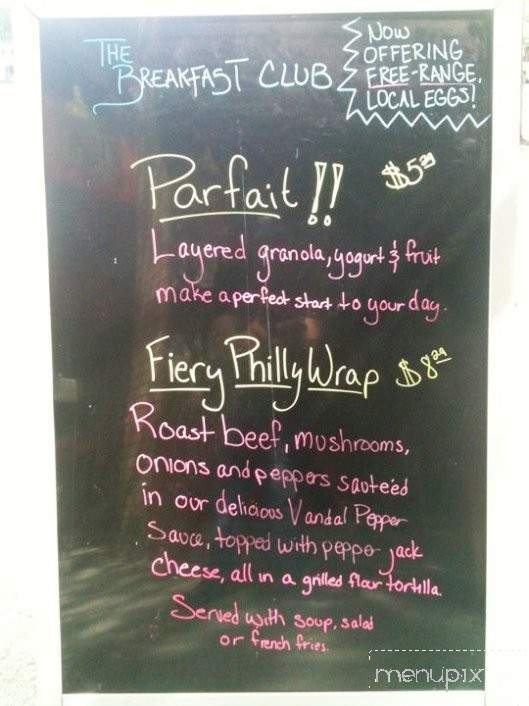 THE BREAKFAST CLUB
NOW
OFFERING
FREE-RANGE,
LOCAL EGGS!
Parfait!! $5.29
Layered granola, yogurt & fruit
make a perfect start to your day.
Fiery Philly Wrap $8.29
Roast beef, mushrooms,
onions and peppers sauteéd
in our delicious Vandal Pepper
Sauce, topped with pepper jack
cheese, all in a grilled flour tortilla.
Served with soup, salad
or french fries.
menupix